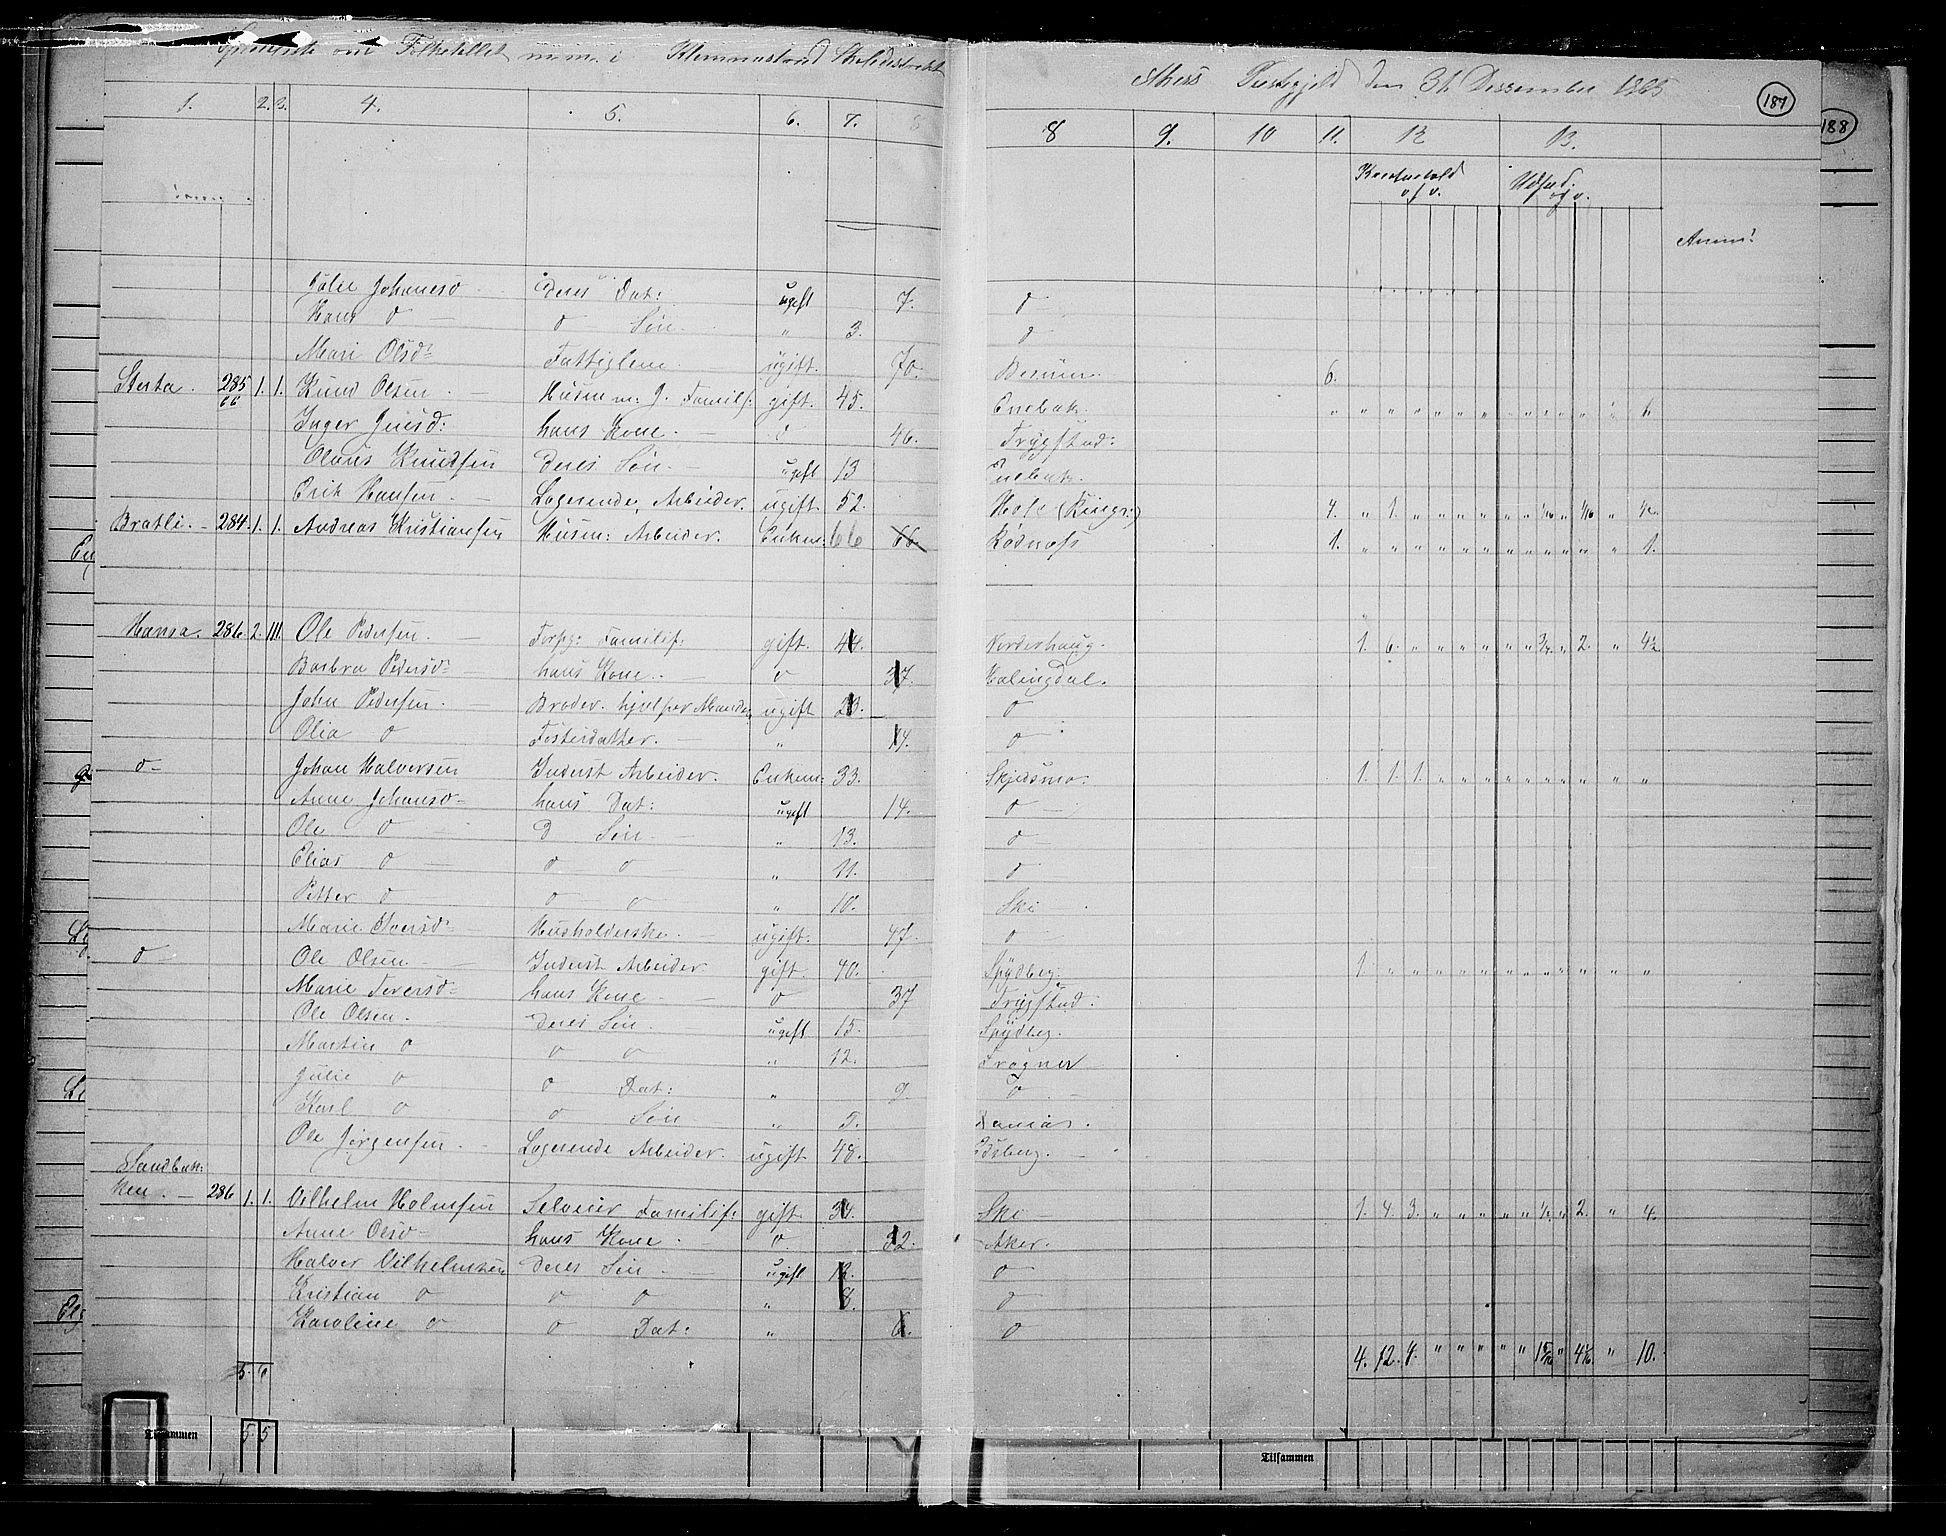 Specialliste over Folketallet m. m. i Klemmestrud Skoledistrikt
Akers Præstegjeld den 31 Dessember 1865
187
188
1. 2. 3. 4. 5. 6. 7. 8
8 9. 10 11. 12 13.
Kreaturhold o/s v.
Udsæd. o/s v.
Anm:
Julie Johanesd Deres Dat: ugift 7. d
Hans d d Søn " 3. d
Mari Olsd: Fattiglem ugift. 70. 6.
Sterta. 285 66 1. 1. Knud Olsen Husm m: J. Familif. gift. 45. Enebak " " " " " " " " " " "
Inger Jensd: hans Kone d 46. Trygstad:
Olaus Knudsen Deres Søn ugift 13 Enebak
Erik Hansen Logerende, Arbeider. ugift. 52. Hole (Ringr:)
Bratli. 284. 1. 1. Andreas Kristiansen Husm: Arbeider. Enkem: 66 66. Rødnæss 1. " " " " " " " " " " " 1.
Hansa. 286. 2. III. Ole Pedersen Forpg: Familif. gift. 44. Norderhaug. 1. 6. " " " " " 3/4 " 2. " 4½
Barbra Pedersd: hans Kone. d 37. Halingdal.
John Pedersen Broder. hjelper Manden ugift 23. d
Olia d Fosterdatter. " 14. d
d Johan Halversen Inderst Arbeider. Enkem: 33. Skjedsmo. 1. 1. 1. " " " " " " " " " "
Anne Johansd hans Dat: ugift 14. d
Ole d D Søn " 13. d
Elias d d d " 11. d
Petter d d d " 10. Ski
Marie Iversd Husholderske ugift. 47. d
d Ole Olsen Inderst Arbeider gift. 40. Spydbeg. 1. " " " " " " " " " " "
Marie Torersd hans Kone d 37 Trygstad.
Ole Olsen. Deres Søn. ugift 15. Spydbeg.
Martin d d d " 12. Frogner
Julie d d Dat: " 9. d
Karl d d Søn " 5.
Ole Jørgensen. Logerende Arbeider. ugift 48. Edsberg.
Sandbak:
ken. 286 1. 1. Vilhelm Holmsen Selveier Familif: gift 34. Ski 1. 4. 3. " " " " " ¼ " 2. " 4.
Anne Olsd hans Kone. d. 32. Aker.
Halver Vilhelmsen Deres Søn ugift 12. d
Kristian d d d " 8. d
Karoline d d Dat: " 6. d
5. 6
4. 12. 4. " " " " " " 4⅙ " 10.
Tilsammen 5 5
Tilsammen